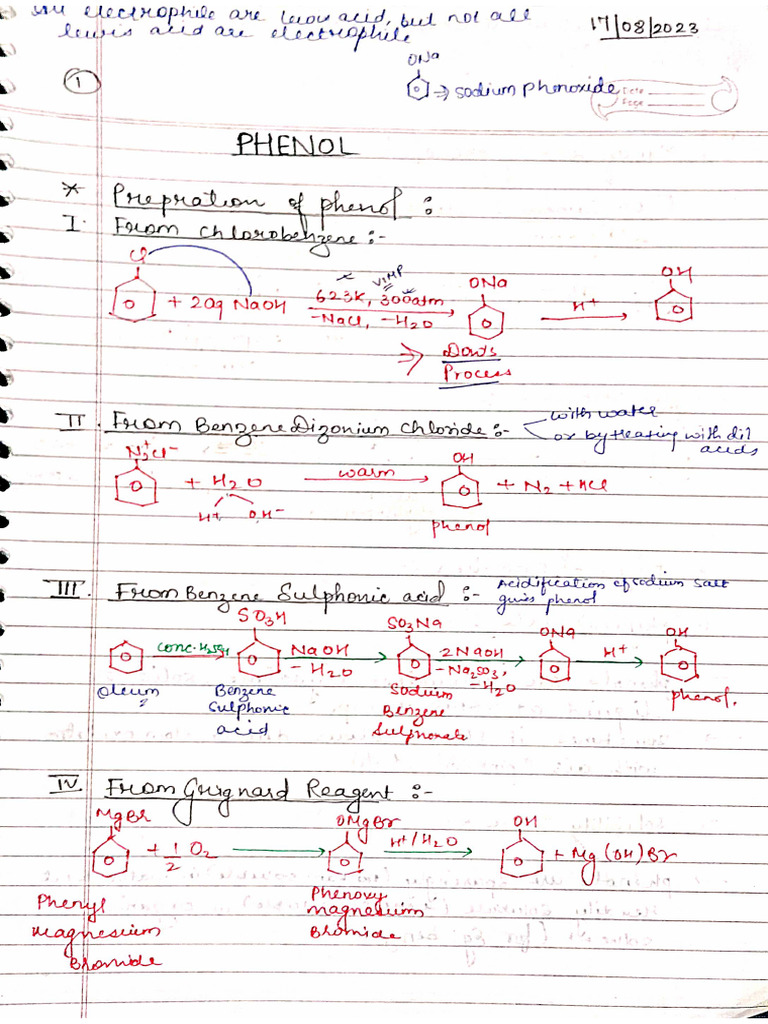 All electrophile are lewis acid, but not all
lewis acid are electrophile
17/08/2023
ONa
→ sodium phenoxide
Date
Page
1
PHENOL
* Prepration of phenol :
I. From chlorobenzene :-
Cl
+ 2aq NaOH
623K, 300atm
VIMP
-NaCl, -H2O
ONa
H+
OH
Dow's
Process
II From Benzene Dizonium chloride :-
with water
or by treating with dil
acids
N2+Cl-
+ H2O
H+ OH-
warm
OH
+ N2 + HCl
phenol
III. From Benzene Sulphonic acid :-
Acidification of sodium salt
gives phenol
conc. H2SO4
SO3H
NaOH
- H2O
SO3Na
2NaOH
-Na2SO3,
-H2O
ONa
H+
OH
oleum
Benzene
Sulphonic
acid
Sodium
Benzene
Sulphonate
phenol.
IV. From Grignard Reagent :-
MgBr
+ 1/2 O2
OMgBr
H+/H2O
OH
+ Mg(OH)Br
Phenyl
magnesium
Bromide
Phenoxy
magnesium
Bromide